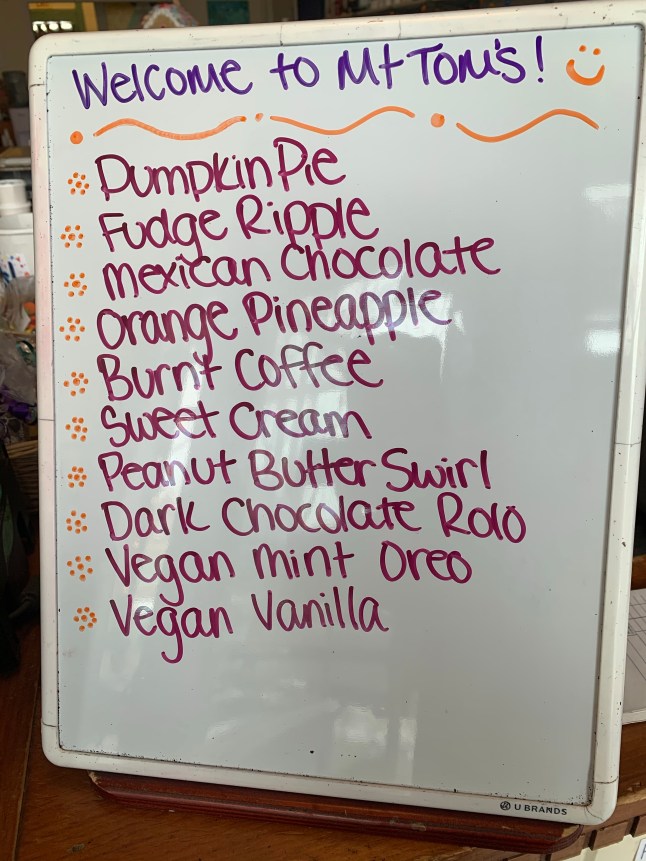 Welcome to Mt Tom's!
Pumpkin Pie
Fudge Ripple
Mexican Chocolate
Orange Pineapple
Burnt Coffee
Sweet Cream
Peanut Butter Swirl
Dark Chocolate Rolo
Vegan Mint Oreo
Vegan Vanilla
U BRANDS